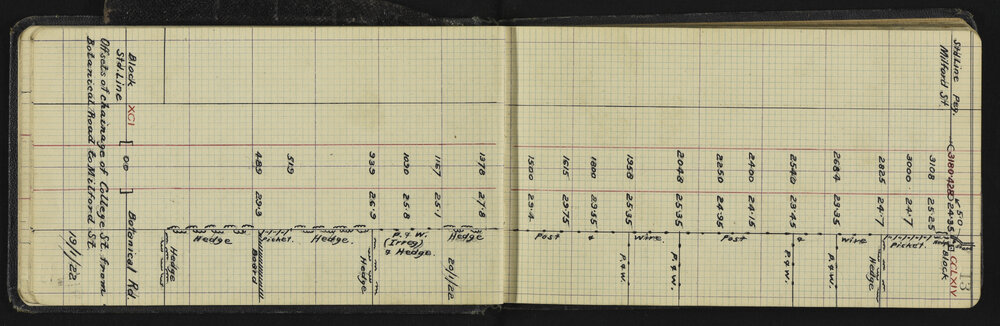 13
Std Line Peg. 50
Milford St. C3180.428 24.35 Block CCLXIV
3108 25.25
3000. 24.7 Picket.
2825 24.7 Hedge
2684 23.35 Wire P. & W.
2540 23.45 & P. & W.
2400 24.15
2250 24.95 Post
2048 25.35 P. & W.
1958 25.35 Wire. P. & W.
1800 23.55 &
1615 23.75
1500 23.4 Post
1378 27.8 Hedge
1167 25.1 20/1/22
1030 25.8 P. & W. (Irreg) & Hedge.
939 26.9 Hedge
519 Hedge.
489 29.3 Picket. Board
Hedge
Hedge
Block XCI [ 00 ] Botanical Rd.
Std. Line
Offsets & chainage of College St. from
Botanical Road to Milford St.
19/1/22